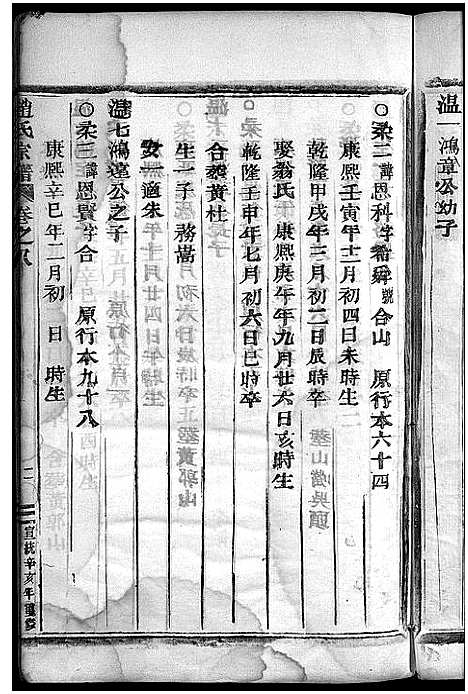 温一鴻章公幼子
○柔二諱恩科字 號合山 原行本六十四
康熙壬寅年十二月初四日未時生
乾隆甲戌年三月初二日辰時卒 葬山當吳頭
娶翁氏 康熙庚午年九月廿六日亥時生
乾隆壬申年七月初六日巳時卒
合葬黃杜
生一子 務嵩
女一適朱
溫七鴻達公之子
○柔三諱恩賢字合 原行本九十八
康熙辛巳年二月初 日 時生
趙氏宗譜 卷之八
宣統辛亥年重修